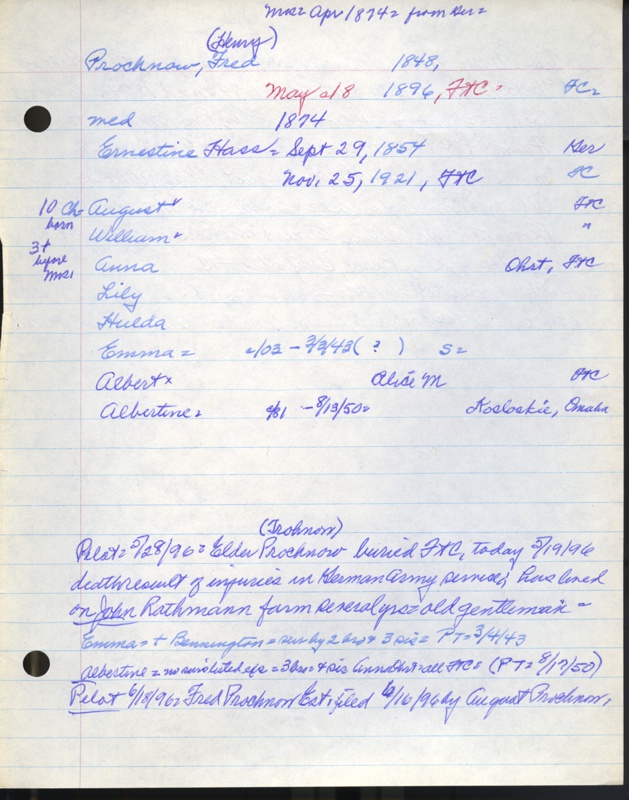 Mrs = Apr 1874 = from Ger =
(Henry)
Prochnow, Fred 1848,
May 18 1896, FtC. FC=
med 1874
Ernestine Hass = Sept 29, 1854 Ger
Nov. 25, 1921, FtC FC
10 Ch August FtC
born William "
3 + Anna Ohst, FtC
Mrs Lily
Hulda
Emma = -/03 - 3/3/43 ( ? ) S =
Albert x Alice M FtC
Albertine = - 8/13/50 = Kosloskie, Omaha
(Trohnow)
Pilot = 5/28/96 = Elder Prochnow buried FtC, today 5/19/96
death result of injuries in German Army service; has lived
on John Rathmann farm several yrs = old gentleman -
Emma = + Bennington = sur by 2 bro + 3 sis = PT = 3/4/43
Albertine = no = 3 bro = 4 sis Anna Ohst = all FtC = (PT = 8/17/50)
Pilot 6/18/96 = Fred Prochnow Est. filed 6/16/96 by August Prochnow,